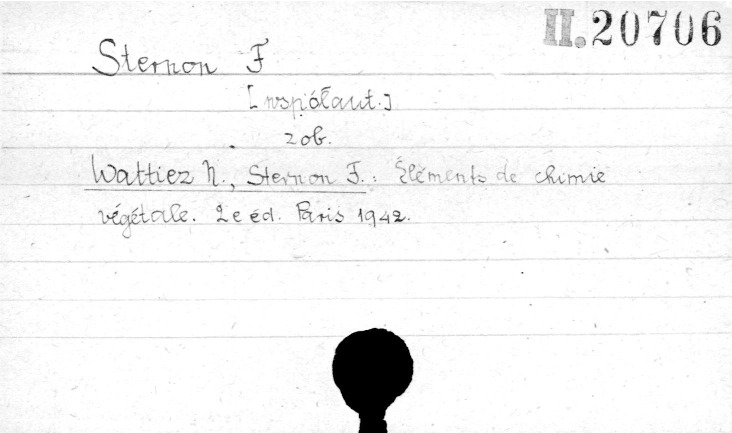 II. 20706
Sternon F
[współaut.]
zob.
Wattiez N., Sternon F.: Éléments de chimie
végétale. 2e éd. Paris 1942.